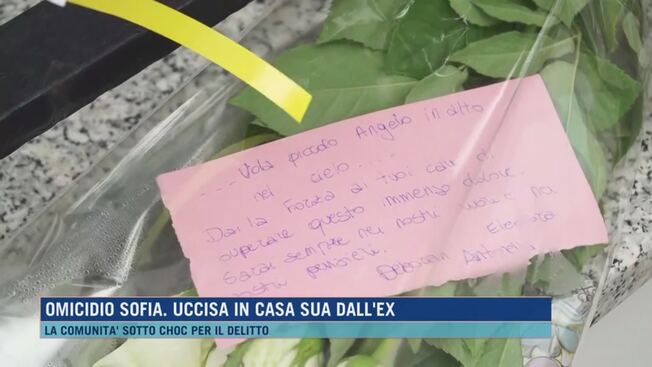 Vola piccolo Angelo in alto
nel cielo....
Dai la forza ai tuoi cari di
superare questo immenso dolore.
Sarai sempre nei nostri cuori e nei
nostri pensieri.
Eleonora
Deborah Antonella
OMICIDIO SOFIA. UCCISA IN CASA SUA DALL'EX
LA COMUNITA' SOTTO CHOC PER IL DELITTO